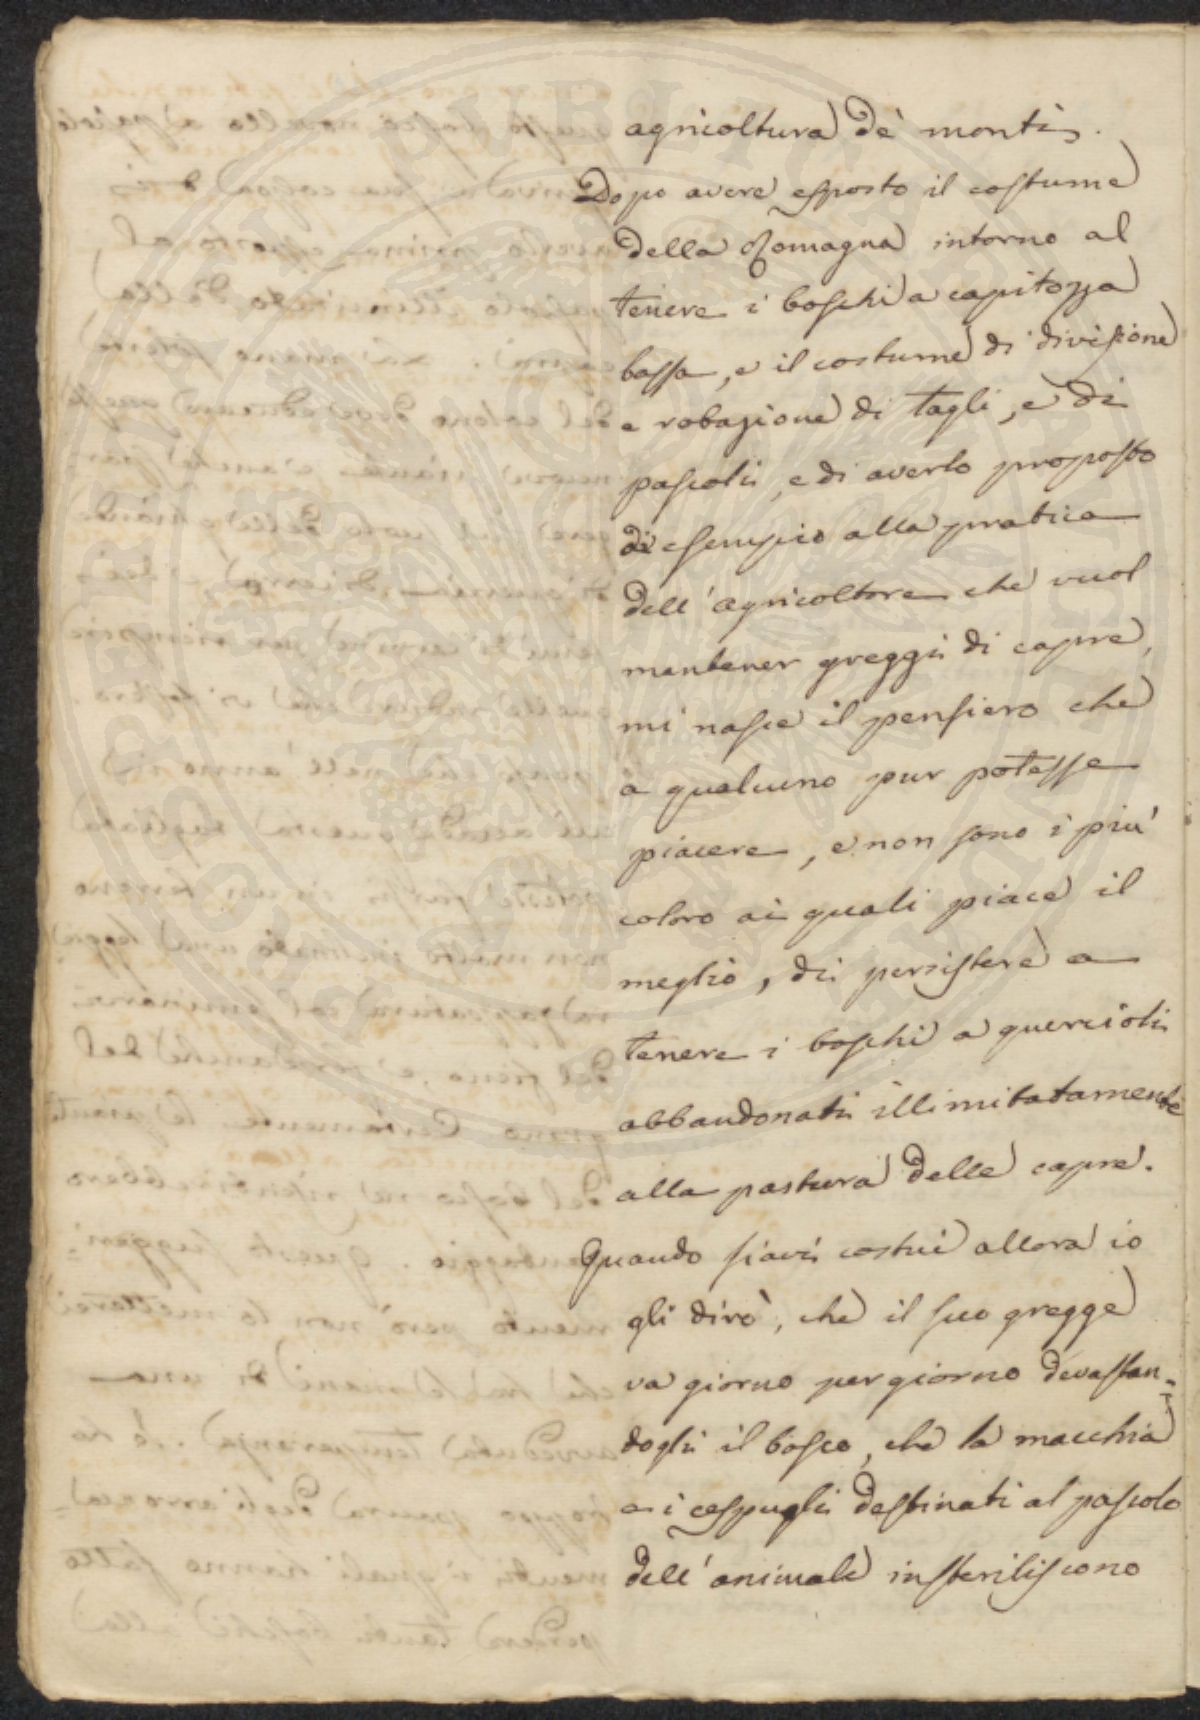 agricoltura de' monti.
Dopo avere esposto il costume
della Romagna intorno al
tenere i boschi a capitozza
bassa, e il costume di divisione
e robazione di tagli, e di
pascoli, e di averlo proposto
di esempio alla pratica
dell'agricoltore che vuol
mantener greggi di capre,
mi nasce il pensiero che
a qualcuno pur potesse
piacere, e non sono i più
coloro ai quali piace il
meglio, di persistere a
tenere i boschi a quercioli
abbandonati illimitatamente
alla pastura delle capre.
Quando siavi costui allora io
gli dirò, che il suo gregge
va giorno per giorno devastan-
dogli il bosco, che la macchia
e i cespugli destinati al pascolo
dell'animale insteriliscono